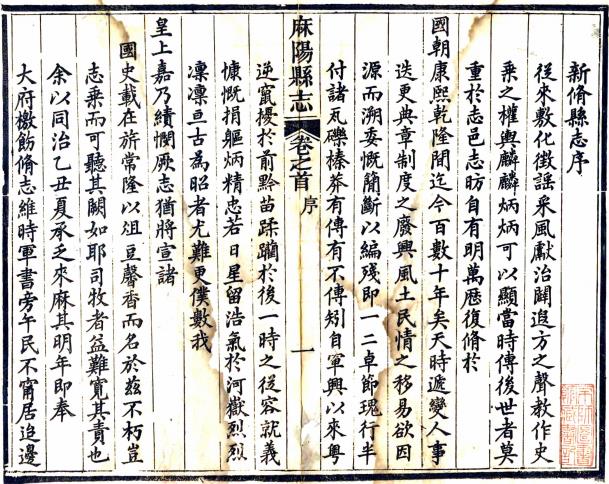 新脩縣志序
從來敷化徵謠采風獻治闢遐方之聲教作史
乘之權輿麟麟炳炳可以顯當時傳後世者莫
重於志邑志昉自有明萬歷復脩於
國朝康熙乾隆間迄今百數十年矣天時遞變人事
迭更典章制度之廢興風土民情之移易欲因
源而溯委慨簡斷以編殘即一二卓節瑰行半
付諸瓦礫榛莽有傳有不傳矧自軍興以來粵
麻陽縣志
卷之首
序
一
逆竄擾於前黔苗蹂躪於後一時之從容就義
慷慨捐軀炳精忠若日星留浩氣於河嶽烈烈
凜凜亘古為昭者尤難更僕數我
皇上嘉乃績憫厥志猶將宣諸
國史載在旂常隆以俎豆馨香而名於茲不朽豈
志乘而可聽其闕如耶司牧者益難寬其責也
余以同治乙丑夏承乏來麻其明年即奉
大府檄飭脩志維時軍書旁午民不甯居迨邊